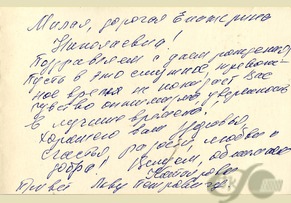 Милая, дорогая Екатерина
Николаевна!
Поздравляем с днем рождения
Пусть в это смутное, тревож-
ное время не покидает Вас
чувство оптимизма, уверенность
в лучшие времена!
Хорошего вам здоровья,
счастья, радости, любви и
добра! Целуем, обнимаем
Привет Льву Петровичу